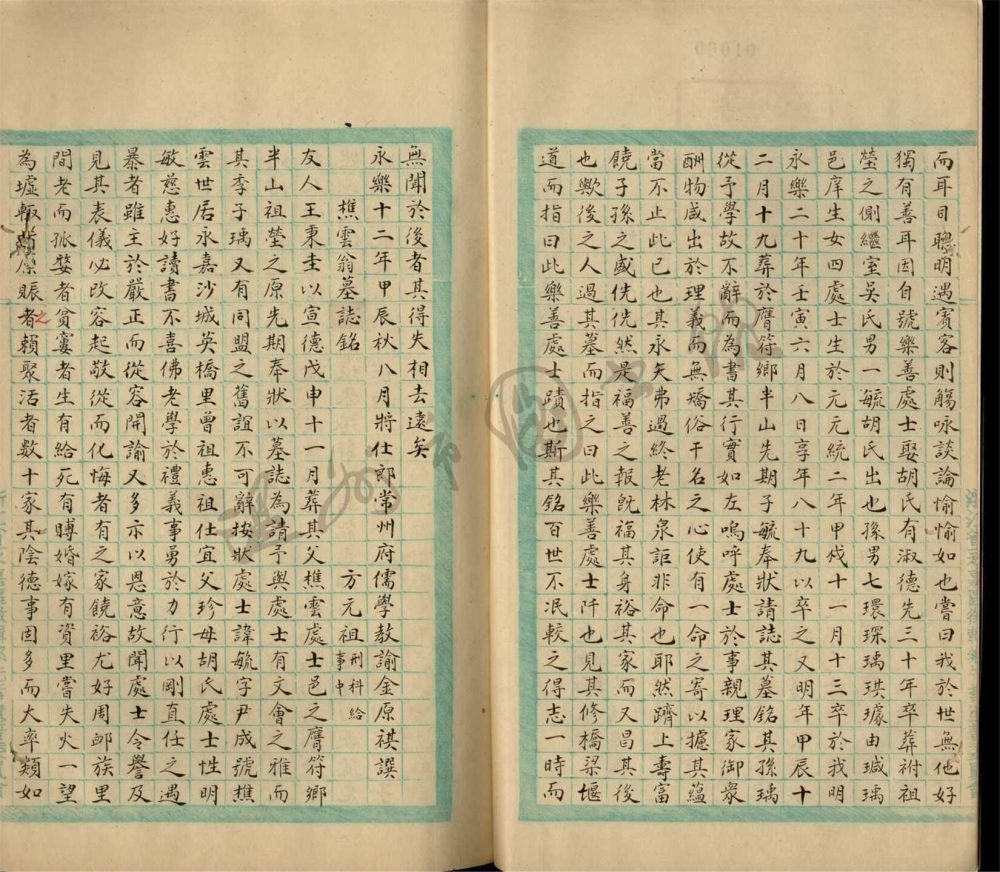 而耳目聰明遇賓客則觴咏談論愉愉如也嘗曰我於世無他好
獨有善耳因自號樂善處士娶胡氏有淑德先三十年卒葬祔祖
塋之側繼室吳氏男一毓胡氏出也孫男七環琛瑀珙璩由瑊瑀
邑庠生女四處士生於元元統二年甲戌十一月十三卒於我明
永樂二十年壬寅六月八日享年八十九以卒之又明年甲辰十
二月十九葬於膺符鄉半山先期子毓奉狀請誌其墓銘其孫瑀
從予學故不辭而為書其行實如左嗚呼處士於事親理家御衆
酬物咸出於理義而無矯俗干名之心使有一命之寄以攄其蘊
當不止此已也其永矢弗過終老林泉詎非命也耶然躋上壽富
饒子孫之盛侁侁然是福善之報既福其身裕其家而又昌其後
也歟後之人過其墓而指之曰此樂善處士阡也見其修橋梁堰
道而指曰此樂善處士蹟也斯其銘百世不泯較之得志一時而
無聞於後者其得失相去遠矣
永樂十二年甲辰秋八月將仕郎常州府儒學教諭金原祺譔
樵雲翁墓誌銘 方元祖 刑科給事中
友人王東圭以宣德戊申十一月葬其父樵雲處士邑之膺符鄉
半山祖塋之原先期奉狀以墓誌為請予與處士有文會之雅而
其季子瑀又有同盟之舊誼不可辭按狀處士諱毓字尹成號樵
雲世居永嘉沙城英橋里曾祖惠祖仕宜父珍母胡氏處士性明
敏慈惠好讀書不喜佛老學於禮義事勇於力行以剛直任之遇
暴者雖主於嚴正而從容開諭又多示以恩意故聞處士令譽及
見其表儀必改容起敬從而化悔者有之家饒裕尤好周卹族里
間老而孤嫠者貧窶者生有給死有賻婚嫁有資里嘗失火一望
為墟輙發廩賑之者賴聚活者數十家其陰德事固多而大率類如